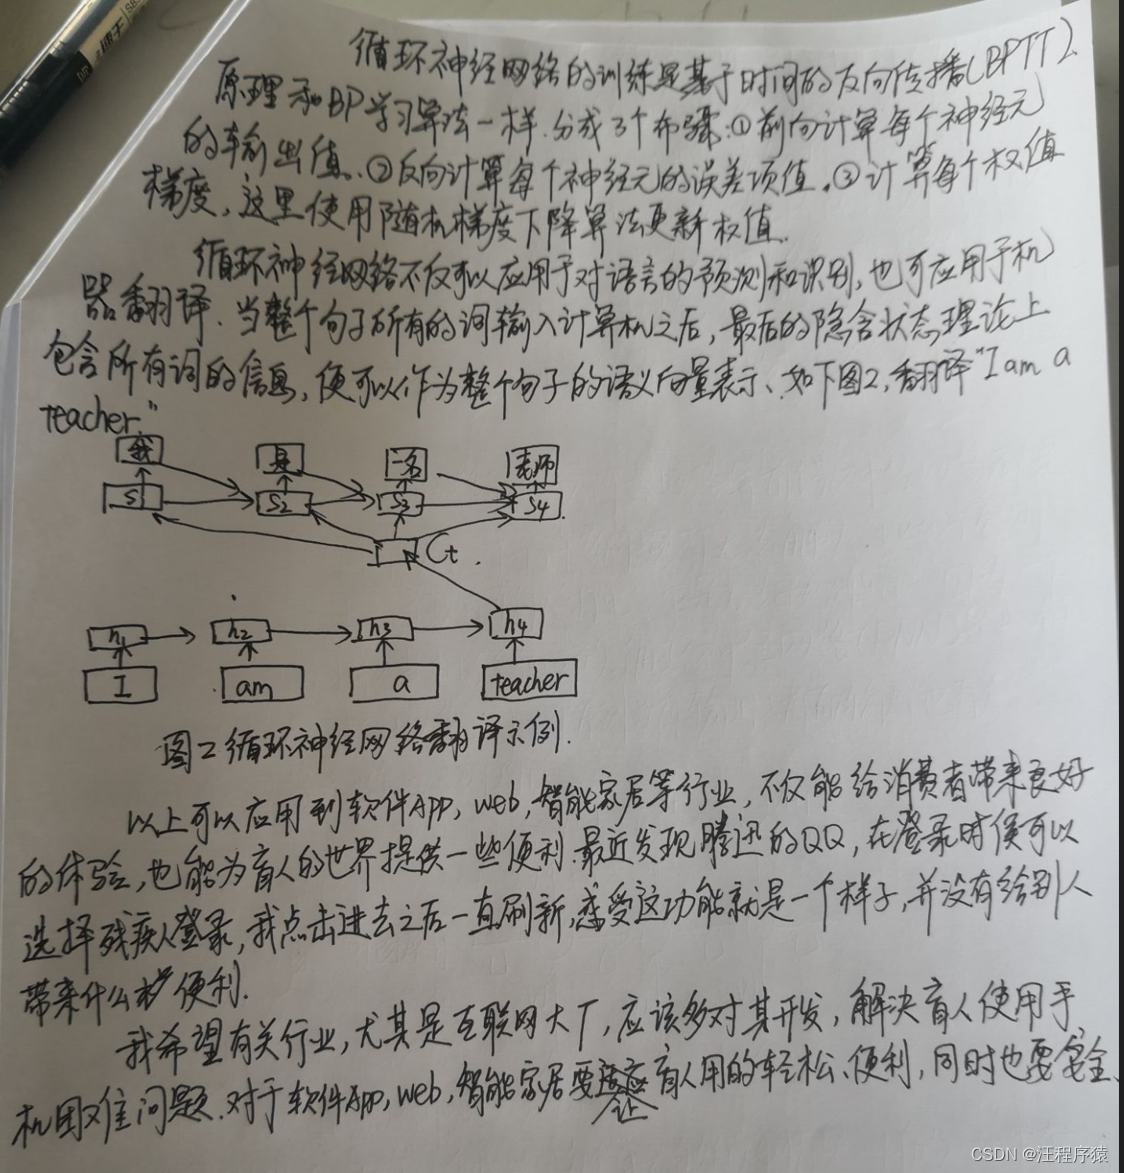 循环神经网络的训练是基于时间的反向传播(BPTT)
原理和BP学习算法一样.分成3个布骤:①前向计算每个神经元
的输出值.②反向计算每个神经元的误差项值.③计算每个权值
梯度,这里使用随机梯度下降算法更新权值.
循环神经网络不仅可以应用于对语言的预测和识别,也可应用于机
器翻译.当整个句子所有的词输入计算机之后,最后的隐含状态理论上
包含所有词的信息,便可以作为整个句子的语义向量表示、如下图2,翻译"I am a
teacher."
我 是 一名 老师
S1 S2 S3 S4
Ct
h1 h2 h3 h4
I am a teacher
图2 循环神经网络翻译示例.
以上可以应用到软件APP,web,智能家居等行业,不仅能给消费者带来良好
的体验,也能为盲人的世界提供一些便利.最近发现腾迅的QQ,在登录时候可以
选择残疾人登录,我点击进去之后一直刷新,感受这功能就是一个样子,并没有给别人
带来什么便利.
我希望有关行业,尤其是互联网大厂,应该多对其开发,解决盲人使用手
机困难问题.对于软件APP,web,智能家居要让盲人用的轻松、便利,同时也要安全、
CSDN @汪程序猿